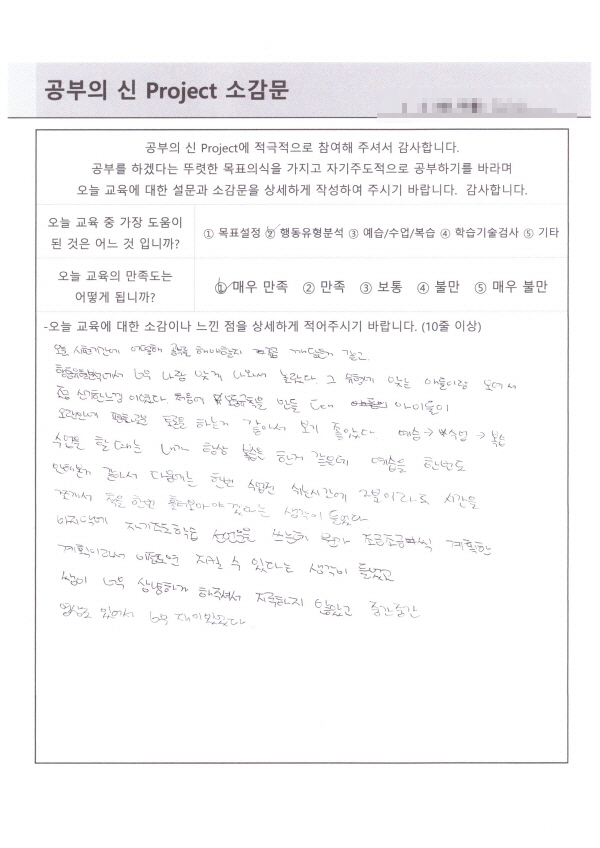 공부의 신 Project 소감문
공부의 신 Project에 적극적으로 참여해 주셔서 감사합니다.
공부를 하겠다는 뚜렷한 목표의식을 가지고 자기주도적으로 공부하기를 바라며
오늘 교육에 대한 설문과 소감문을 상세하게 작성하여 주시기 바랍니다. 감사합니다.
오늘 교육 중 가장 도움이
된 것은 어느 것 입니까?
① 목표설정 ② 행동유형분석 ③ 예습/수업/복습 ④ 학습기술검사 ⑤ 기타
오늘 교육의 만족도는
어떻게 됩니까?
① 매우 만족 ② 만족 ③ 보통 ④ 불만 ⑤ 매우 불만
-오늘 교육에 대한 소감이나 느낀 점을 상세하게 적어주시기 바랍니다. (10줄 이상)
오늘 시험기간에 어떻게 공부를 해야할지 깨달은거 같고
행동유형분석에서 너무 나랑 맞게 나와서 놀랐다. 그 유형에 맞는 애들이랑 모여서
좀 신기한느낌 이였다 처음에 만들 때 아이들이
토론을 하는거 같아서 보기 좋았다 예습 → 수업 → 복습
수업을 할 때는 내가 항상 복습은 한거 같은데 예습을 한번도
안해본거 같아서 다음에는 한번 수업전 쉬는시간에 2분이라도 시간을
쪼개서 책을 한번 훑어보아야 겠다는 생각이 들었다
마지막에 자기주도학습 선언문을 쓰는데 뭔가 조금조금씩 계획한
계획이라서 이정도면 지킬 수 있다는 생각이 들었고
쌤이 너무 상냥하게 해주셔서 지루하지 않았고 중간중간
영상도 있어서 너무 재미있었다.